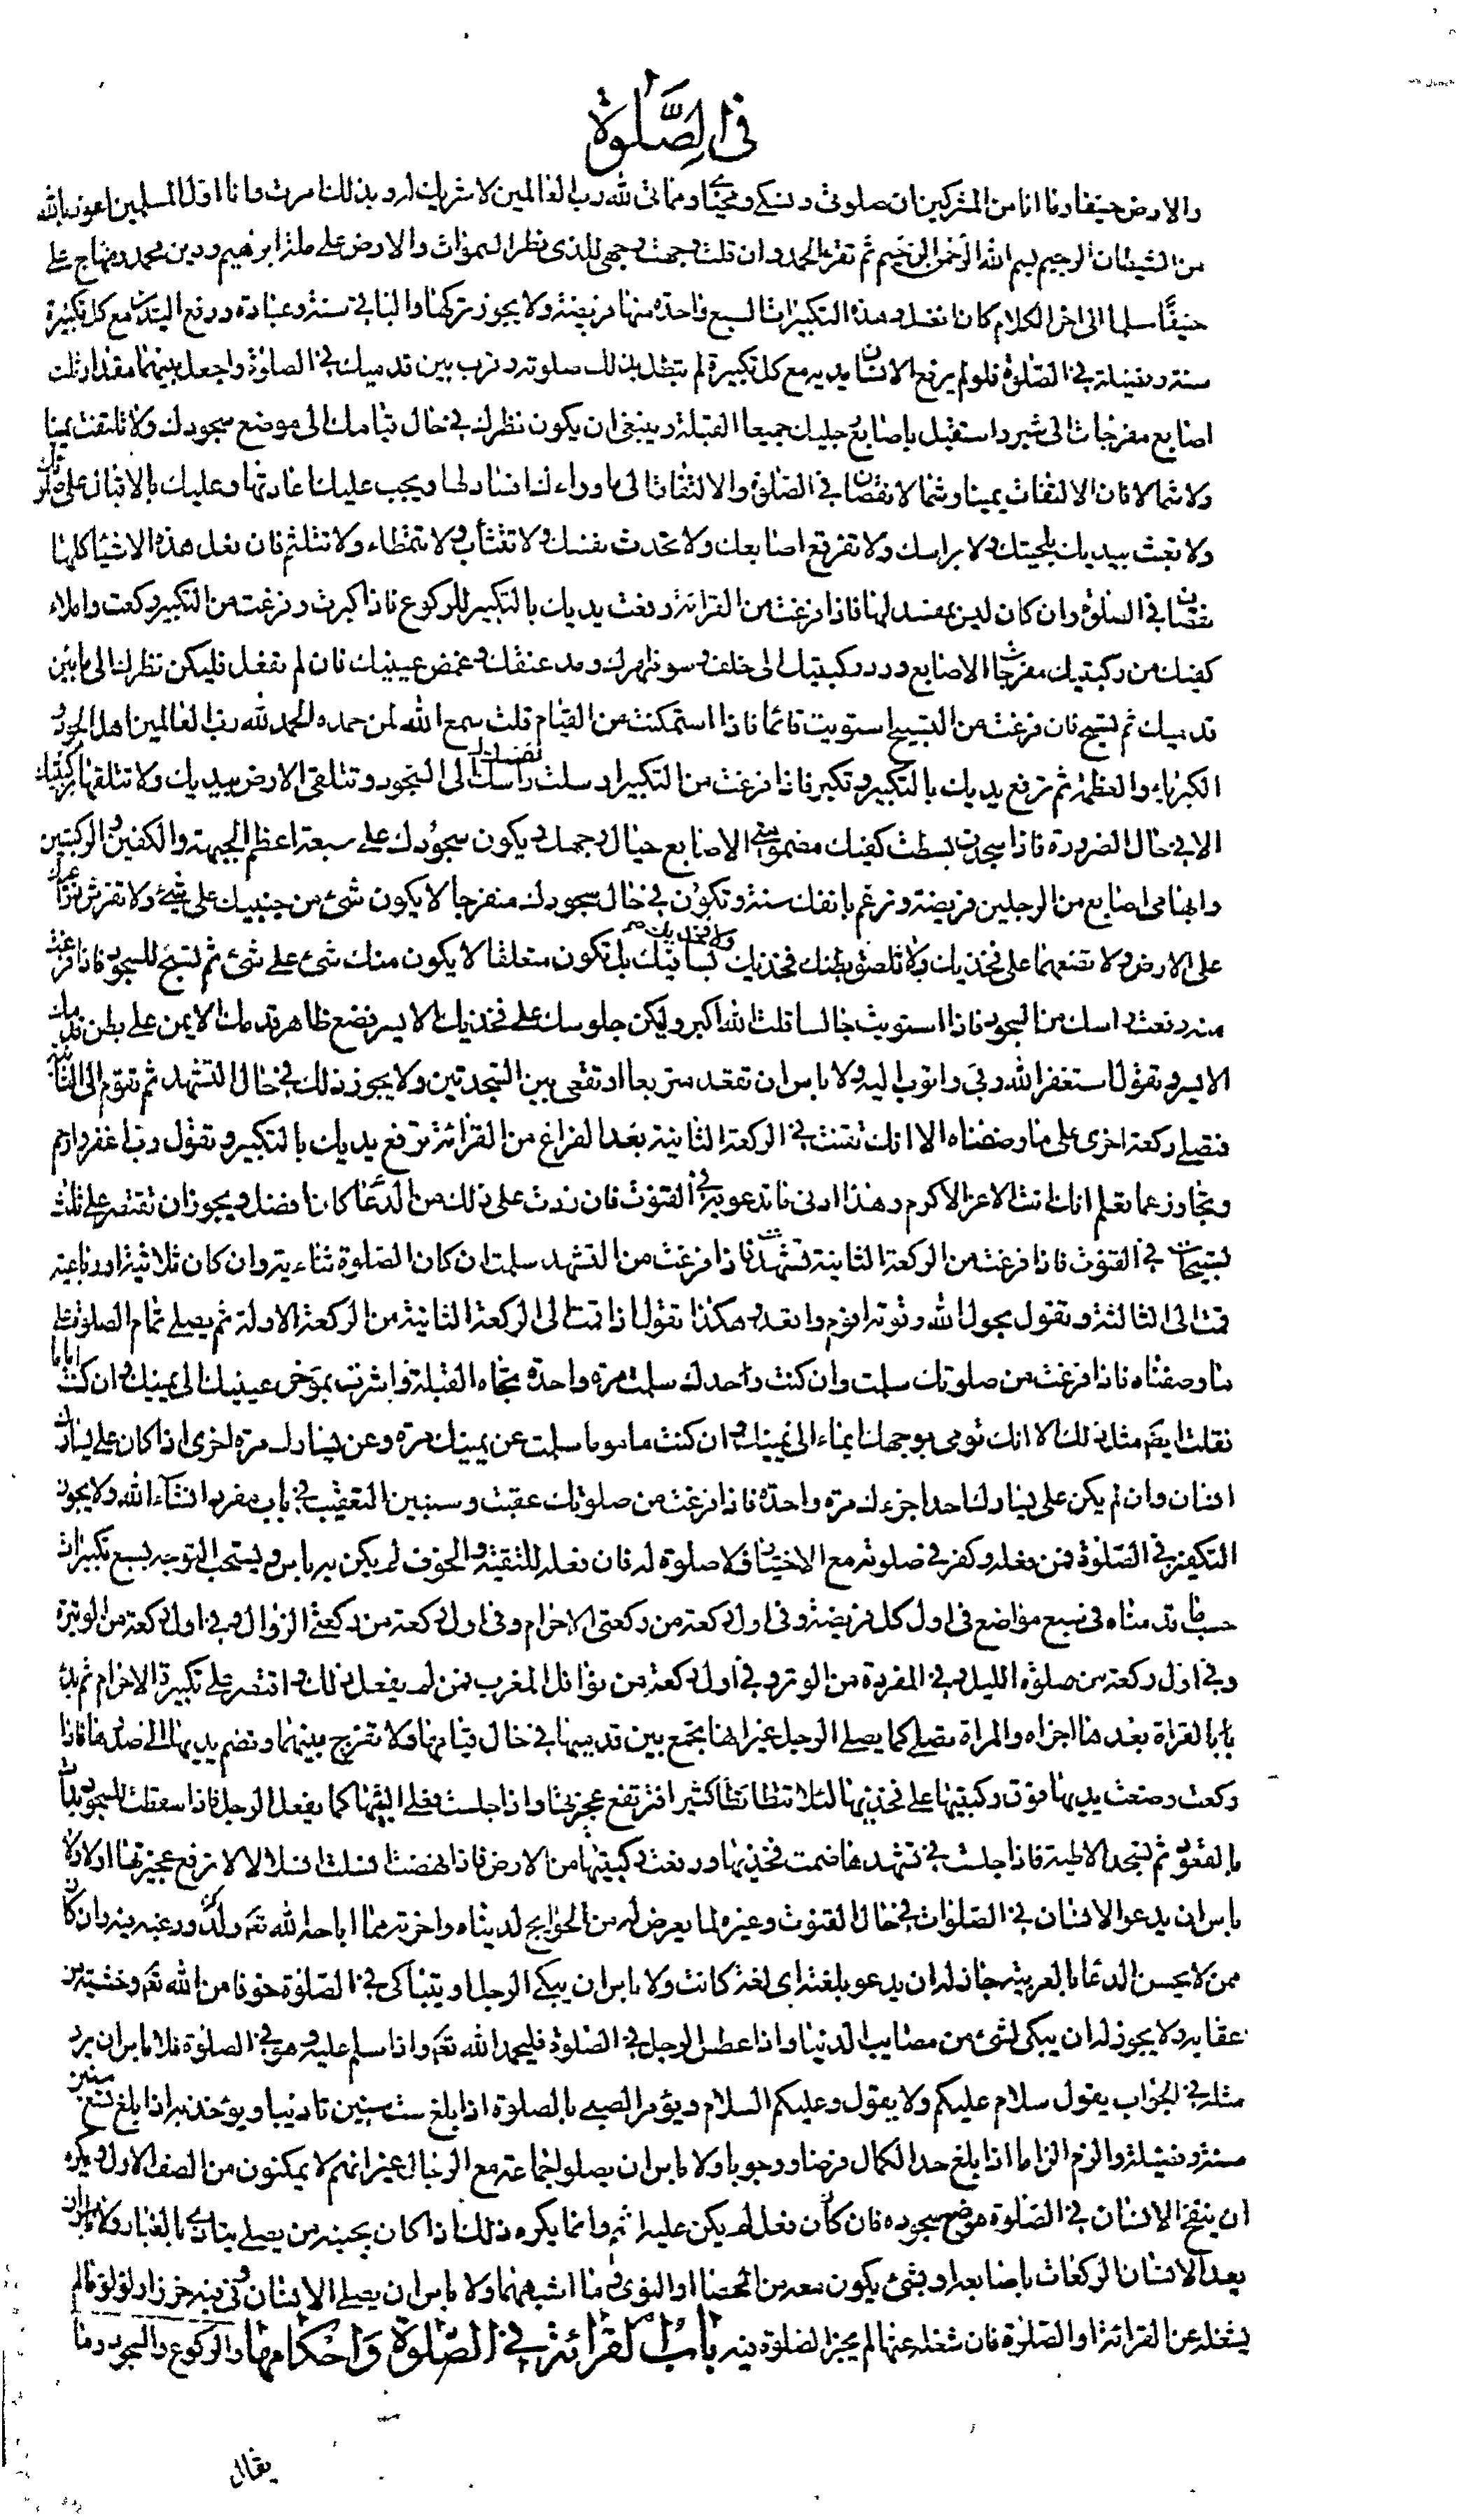 فى الصَّلوٰة
والارض حنيفا وما انا من المشركين ان صلوتى ونسكى ومحياى ومماتى لله رب العالمين لا شريك له وبذلك امرت وانا اول المسلمين اعوذ بالله
من الشيطان الرجيم بسم الله الرحمن الرحيم ثم تقرء الحمد وان قلت وجهت وجهى للذى فطر السموات والارض على ملة ابرهيم ودين محمد ومنهاج على
حنيفًا مسلما الى اخر الكلام كان افضل وهذه التكبيرات السبع واحدة منها فريضة ولا يجوز تركها والباقى سنة وعبادة ورفع اليدين مع كل تكبيرة
سنة وفضيلة فى الصلوة فلو لم يرفع الانسان يديه مع كل تكبيرة لم تبطل بذلك صلوته وقرب بين قدميك فى الصلوة واجعل بينهما مقدار ثلث
اصابع مفرجات الى شبر واستقبل باصابع رجليك جميعا القبلة وينبغى ان يكون نظرك فى حال قيامك الى موضع سجودك ولا تلتفت يمينا
ولا شمالا فان الالتفات يمينا وشمالا نقصان فى الصلوة والالتفات الى ما وراءك افساد لها ويجب عليك اعادتها وعليك بالاقبال على صلوتك
ولا تعبث بيديك بلحيتك ولا براسك ولا تفرقع اصابعك ولا تحدث نفسك ولا تتثأب ولا تتمطاء ولا تتلثم فان فعل هذه الاشياء كلها
نقصان فى الصلوة وان كان ليس بمفسد لها فاذا فرغت من القرائة رفعت يديك بالتكبير للركوع فاذا كبرت وفرغت من التكبير ركعت واملاء
كفيك من ركبتيك مفرجات الاصابع ورد ركبتيك الى خلف وسو ظهرك ومد عنقك وغمض عينيك فان لم تفعل فليكن نظرك الى ما بين
قدميك ثم تسبح فان فرغت من التسبيح استويت قائما فاذا استمكنت من القيام قلت سمع الله لمن حمده الحمد لله رب العالمين اهل الجود
الكبرياء والعظمة ثم ترفع يديك بالتكبير وتكبر فاذا فرغت من التكبير ارسلت نفسك الى السجود وتتلقى الارض بيديك ولا تتلقها بركبتيك
الا فى حال الضرورة فاذا سجدت بسطت كفيك مضمومتى الاصابع حيال وجهك ويكون سجودك على سبعة اعظم الجبهة والكفين والركبتين
وابهامى اصابع من الرجلين فريضة وترغم بانفك سنة وتكون فى حال سجودك منفرجا لا يكون شئ من جنبيك على شئ ولا تفرش ذراعيك
على الارض ولا تضعهما على فخذيك ولا تلصق بطنك فخذيك ولا فخذيك بساقيك بل تكون متعلقا لا يكون منك شئ على شئ ثم تسبح للسجود فاذا فرغت
منه رفعت راسك من السجود فاذا استويت جالسا قلت الله اكبر وليكن جلوسك على فخذيك الايسر تضع ظاهر قدمك الايمن على بطن قدمك
الايسر وتقول استغفر الله ربى واتوب اليه ولا باس ان تقعد متربعا او تقعى بين السجدتين ولا يجوز ذلك فى حال التشهد ثم تقوم الى الثانية
فتصلى ركعة اخرى على ما وصفناه الا انك تقنت فى الركعة الثانية بعد الفراغ من القرائة ترفع يديك بالتكبير وتقول رب اغفر وارحم
وتجاوز عما تعلم انك انت الاعز الاكرم وهذا ادنى ما تدعو به فى القنوت فان زدت على ذلك من الدعا كان افضل ويجوز ان تقتصر على ثلث
تسبيحات فى القنوت فاذا فرغت من الركعة الثانية تشهدت فاذا فرغت من التشهد سلمت ان كان الصلوة ثنائية وان كان ثلاثية او رباعية
قمت الى الثالثة وتقول بحول الله وقوته اقوم واقعد وهكذا تقول اذا قمت الى الركعة الثانية من الركعة الاولة ثم يصلى تمام الصلوة على
ما وصفناه فاذا فرغت من صلوتك سلمت وان كنت وحدك سلمت مرة واحدة تجاه القبلة واشرت بموخر عينيك الى يمينك وان كنت اماما
فعلت ايضا مثل ذلك الا انك تومى بوجهك ايماء الى يمينك وان كنت ماموما سلمت عن يمينك مرة وعن يسارك مرة اخرى اذا كان على يسارك
انسان وان لم يكن على يسارك احد اجزءك مرة واحدة فاذا فرغت من صلوتك عقبت وسنبين التعقيب فى باب مفرد انشاء الله ولا يجوز
التكفير فى الصلوة فمن فعله وكفر فى صلوته مع الاختيار فلا صلوة له فان فعله للتقية والخوف لم يكن به باس ويستحب التوجه بسبع تكبيرات
حسب ما قدمناه فى سبع مواضع فى اول كل فريضة وفى اول ركعة من ركعتى الاحرام وفى اول ركعة من ركعتى الزوال وفى اول ركعة من الوتيرة
وفى اول ركعة من صلوة الليل وفى المفردة من الوتر وفى اول ركعة من نوافل المغرب فمن لم يفعل ذلك واقتصر على تكبيرة الاحرام ثم بدء
بالقراة بعدها اجزاه والمراة تصلى كما يصلى الرجل غير انها تجمع بين قدميها فى حال قيامها ولا تفرج بينهما وتضم يديها الى صدرها فاذا
ركعت وضعت يديها فوق ركبتيها على فخذيها لئلا تتطاطا كثيرا فترتفع عجيزتها واذا جلست فعلى اليتها كما يفعل الرجل فاذا سقطت للسجود بدات
بالقعود ثم تسجد لاطية فاذا جلست فى تشهدها ضمت فخذيها ورفعت ركبتيها من الارض فاذا نهضت انسلت انسلالا لا ترفع عجيزتها اولا ولا
باس ان يدعو الانسان فى الصلوات فى حال القنوت وغيره لما يعرض له من الحوايج لدنياه واخرته مما اباحه الله تع ولد ورغبه فيه وان كان
ممن لا يحسن الدعا بالعربية جاز له ان يدعو بلغته اى لغة كانت ولا باس ان يبكى الرجل او يتباكى فى الصلوة خوفا من الله تع وخشية من
عقابه ولا يجوز له ان يبكى لشئ من مصايب الدنيا واذا عطس الرجل فى الصلوة فليحمد الله تع واذا سلم عليه وهو فى الصلوة فلا باس ان يرد
مثله فى الجواب يقول سلام عليكم ولا يقول وعليكم السلام ويؤمر الصبى بالصلوة اذا بلغ ست سنين تاديبا ويؤخذ به اذا بلغ تسع سنين
سنة وفضيلة والزم الزاما اذا بلغ حد الكمال فرضا ووجوبا ولا باس ان يصلوا جماعة مع الرجال غير انهم لا يمكنون من الصف الاول ويكره
ان ينفخ الانسان فى الصلوة موضع سجوده فان كان فعل لم يكن عليه اثم وانما يكره ذلك اذا كان بجنبه من يصلى يتاذى بالغبار ولا باس ان
يعد الانسان الركعات باصابعه او بشئ يكون معه من الحصا او النوى وما اشبههما ولا باس ان يصلى الانسان وفى فيه خرز او لؤلؤ ما لم
يشغله عن القرائة او الصلوة فان شغله عنها لم يجز الصلوة فيه باب القرائة فى الصَّلوٰة وَاَحْكامها والركوع والسجود وما
يقال